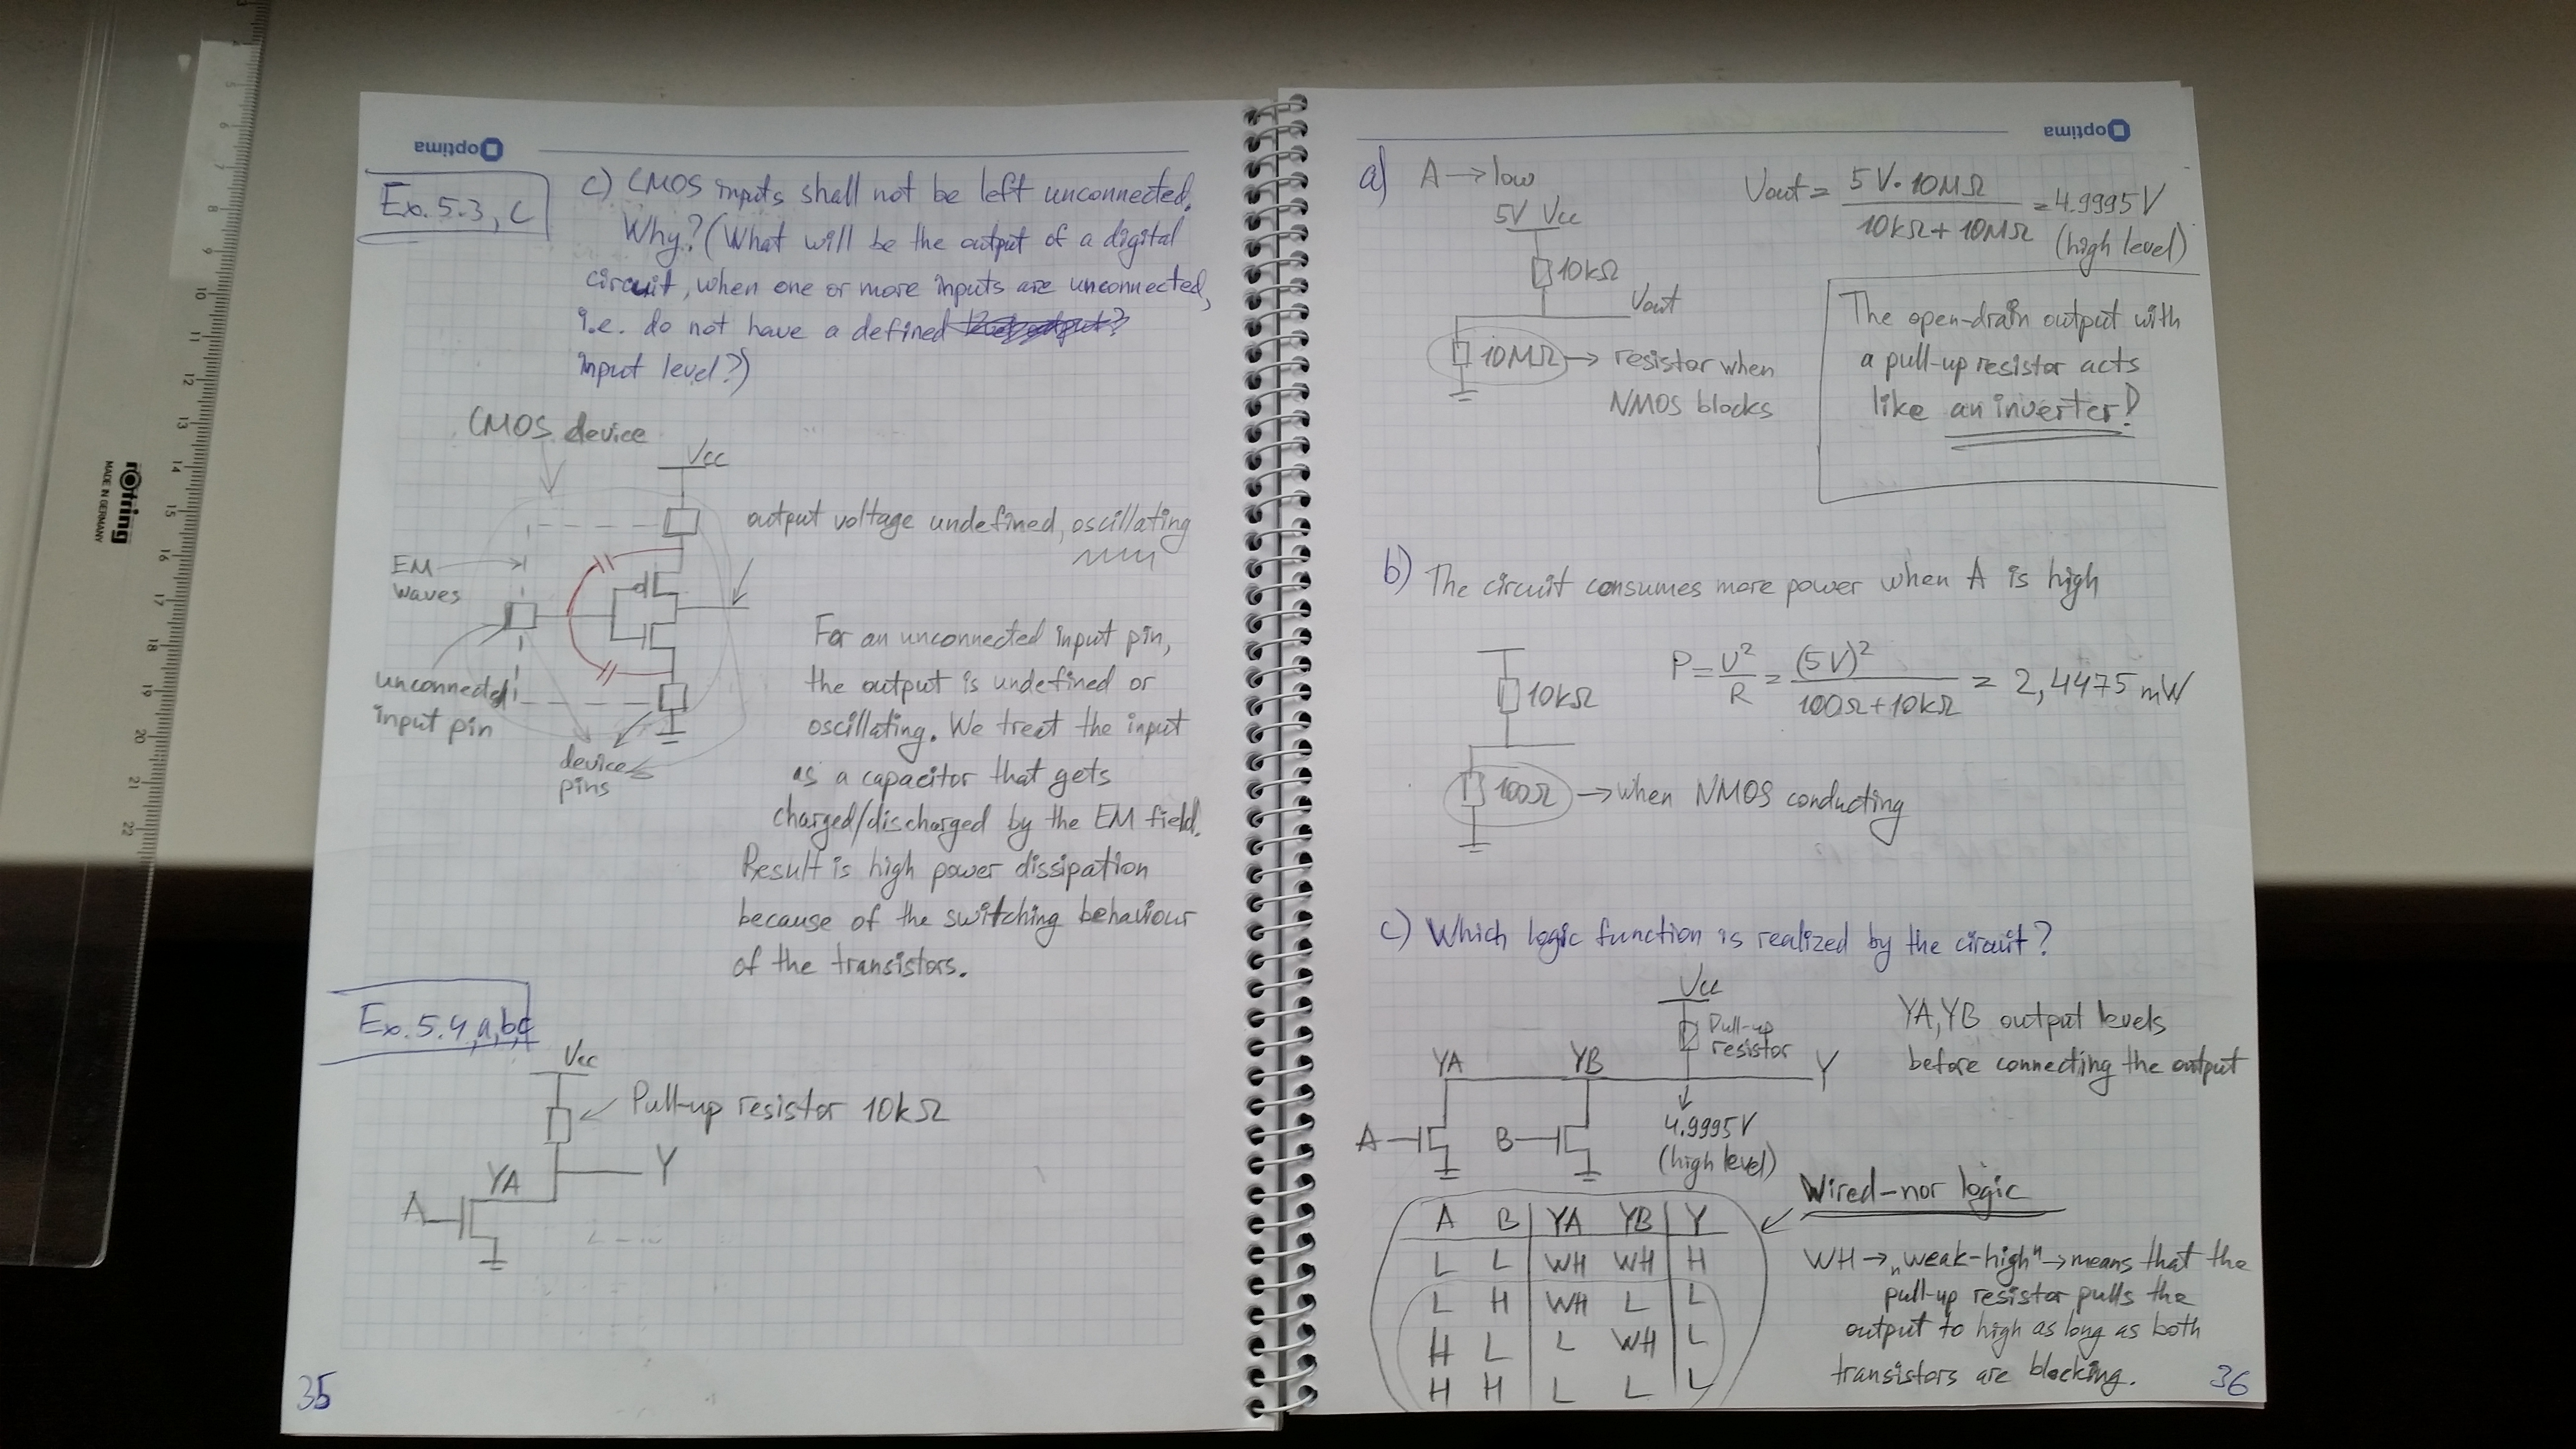 optima
Ex. 5.3, c
c) CMOS inputs shall not be left unconnected.
Why? (What will be the output of a digital
circuit, when one or more inputs are unconnected,
i.e. do not have a defined
input level?)
CMOS device
Vcc
output voltage undefined, oscillating
EM
waves
unconnected
input pin
device
pins
For an unconnected input pin,
the output is undefined or
oscillating. We treat the input
as a capacitor that gets
charged/discharged by the EM field.
Result is high power dissipation
because of the switching behaviour
of the transistors.
Ex. 5.4, a, b, c
Vcc
Pull-up resistor 10kΩ
YA
Y
A
35
optima
a) A → low
5V Vcc
10kΩ
Vout
10MΩ → resistor when
NMOS blocks
Vout = 5V·10MΩ / 10kΩ+10MΩ = 4.9995V
(high level)
The open-drain output with
a pull-up resistor acts
like an inverter!
b) The circuit consumes more power when A is high
10kΩ
P = U² / R = (5V)² / 100Ω+10kΩ = 2,4475 mW
100Ω → when NMOS conducting
c) Which logic function is realized by the circuit?
Vcc
Pull-up
resistor
YA YB Y
A B
4.9995V
(high level)
YA, YB output levels
before connecting the output
Wired-nor logic
A B YA YB Y
L L WH WH H
L H WH L L
H L L WH L
H H L L L
WH → „weak-high" → means that the
pull-up resistor pulls the
output to high as long as both
transistors are blocking.
36
rotring
MADE IN GERMANY
5
6
7
8
9
10
11
12
13
14
15
16
17
18
19
20
21
22